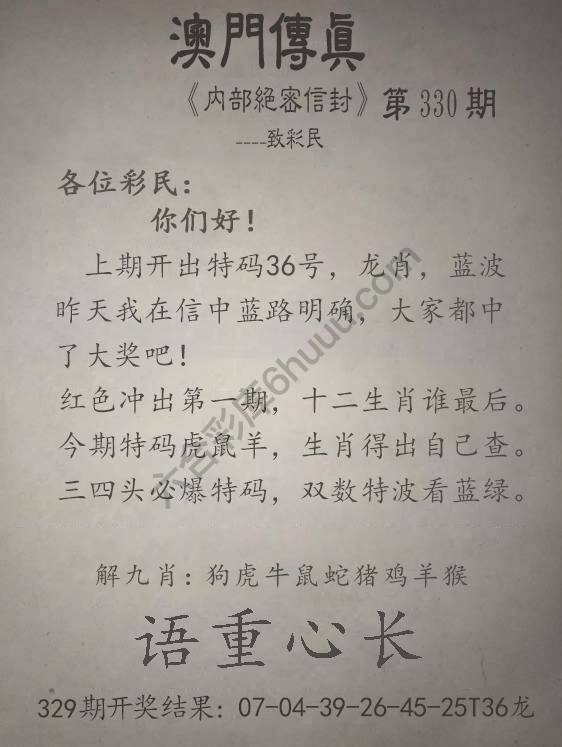 澳門傳眞
《内部絕密信封》第330期
----致彩民
各位彩民：
你们好！
上期开出特码36号，龙肖，蓝波
昨天我在信中蓝路明确，大家都中
了大奖吧！
红色冲出第一期，十二生肖谁最后。
今期特码虎鼠羊，生肖得出自己查。
三四头必爆特码，双数特波看蓝绿。
六合彩库6huuu.com
解九肖：狗虎牛鼠蛇猪鸡羊猴
语重心长
329期开奖结果：07-04-39-26-45-25T36龙